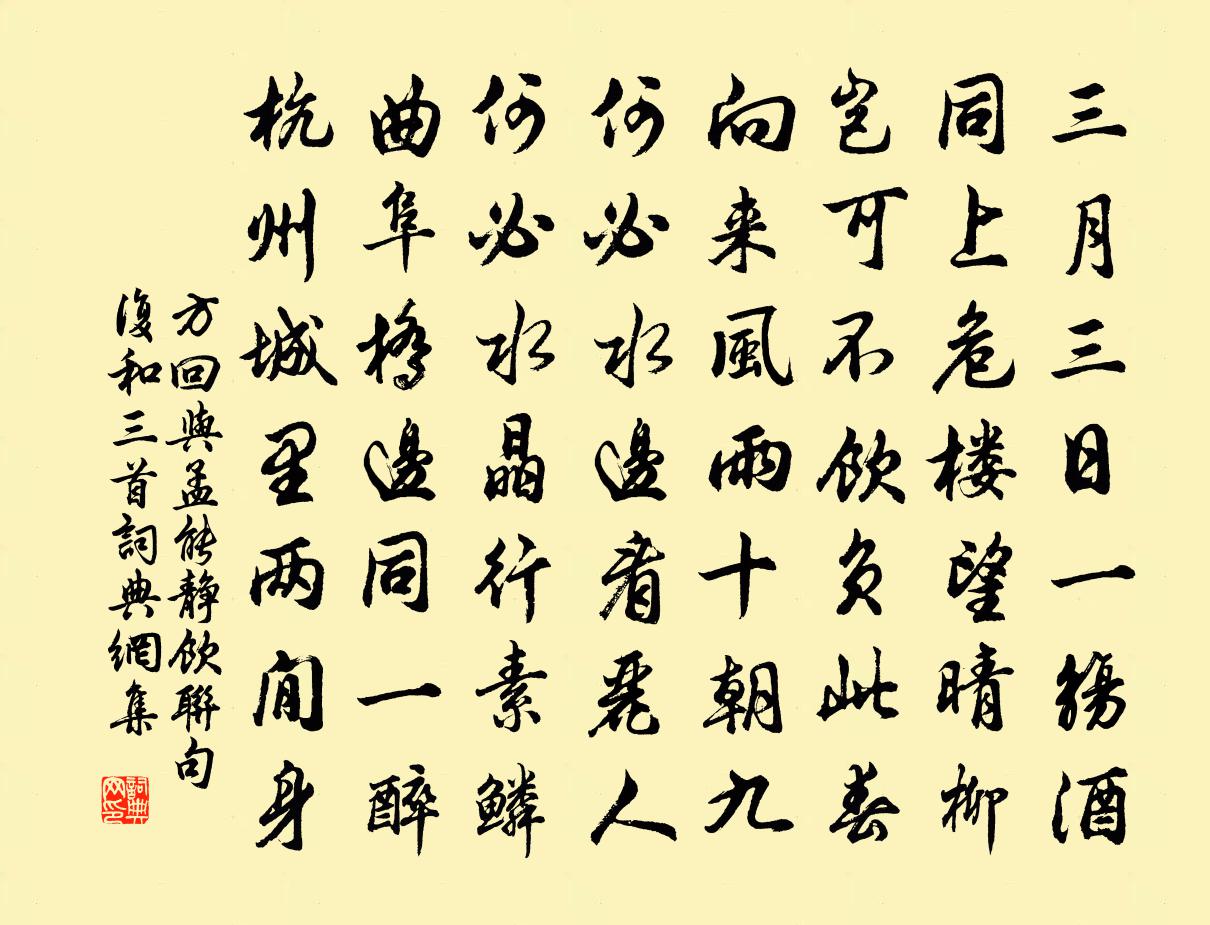 三月三日一觴酒
同上危楼望晴柳
岂可不饮负此春
向来風雨十朝九
何必水邊看麗人
何必水晶行素鱗
曲阜橋邊同一醉
杭州城里两閒身
方回與孟能静饮聯句
復和三首詞典網集
詞典網印